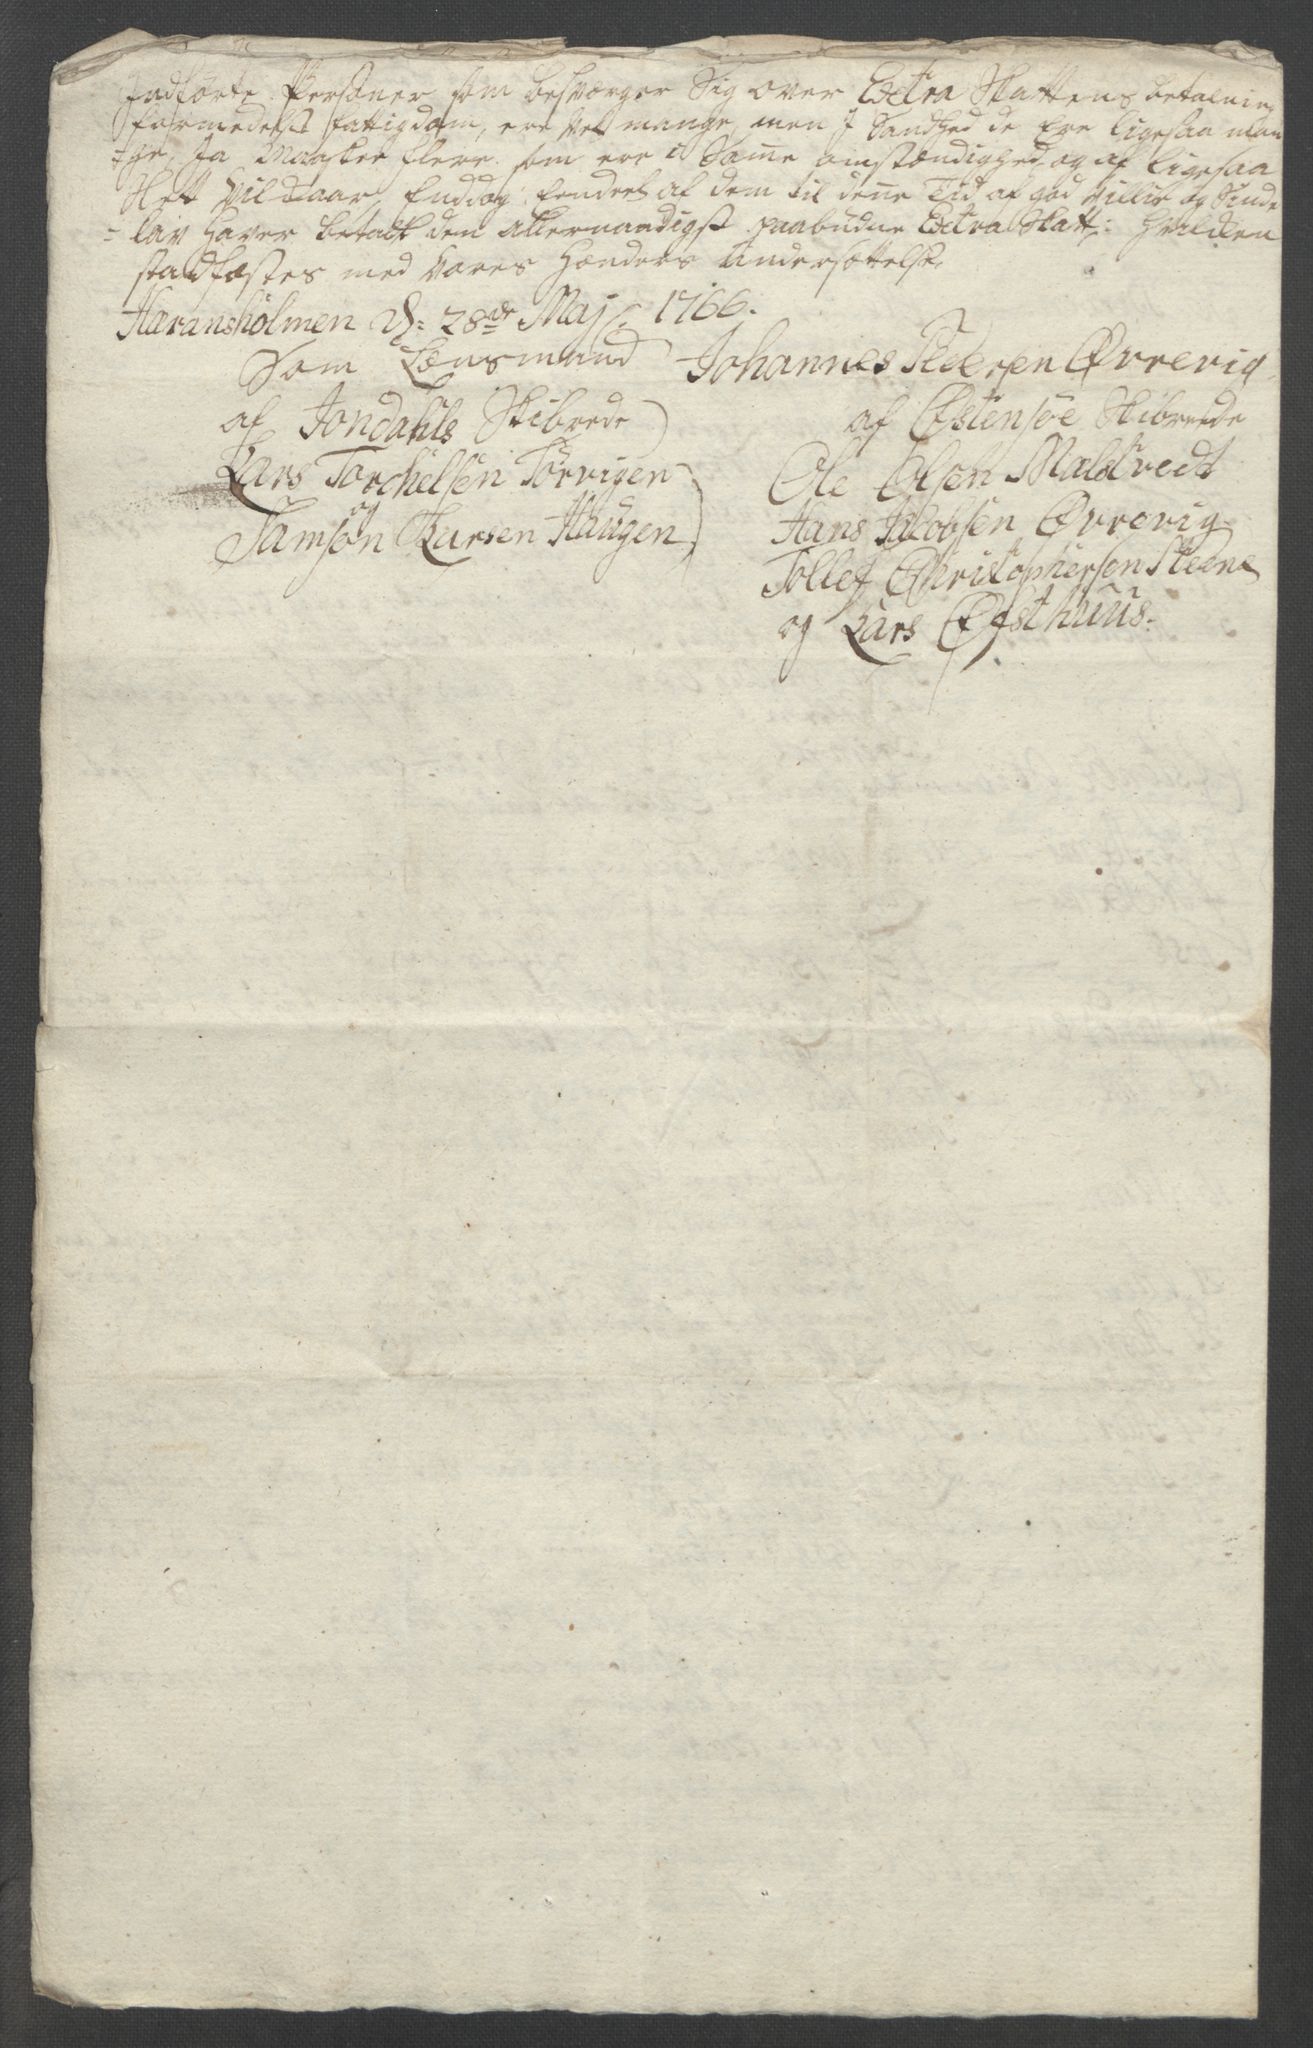 Indførte Personer som besværger Sig over Extra Skattens betalning
formedelst fattigdom, ere vel mange, men J Sandhed de Ere ligesaa man
=ge, Ja Maaskee flere som ere i Samme omstændighed, og af ligesaa
Slet Vilkaar, Enddog Eendeel af dem til denne Tid af god Villie og Sinde
=lav haver betalt den allernaadigst paabudne Extra Skatt; hvilcken
stadfæstes med Vores Hænders Undersættelse,
Haransholmen d: 28de Maj 1766.
Som Lænsmand
af Jondahls Skibrede
Lars Torchelsen Tørvigen
og
Samson Larsen Haugen
Johannes Pedersen Øvrevig
af Østensøe Skibrede
Ole Olsen Maldtvedt
Hans Jacobsen Øvrevig
Tollef Christophersen Steene
og Lars Øfsthuus.